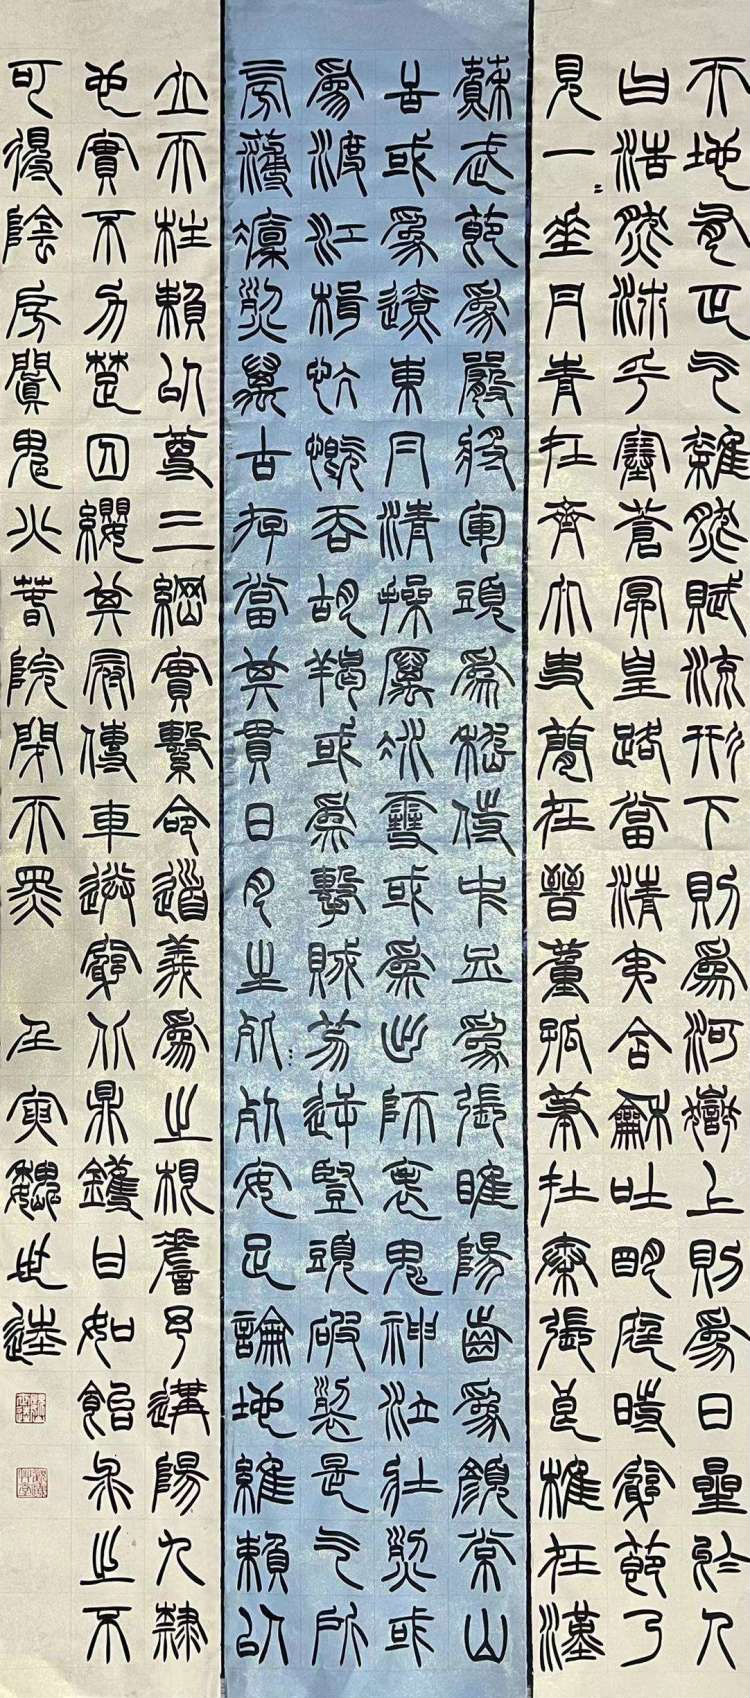 天地有正气雜然賦流形下則爲河嶽上則爲日星於人
曰浩然沛乎塞蒼冥皇路當清夷含龢吐明庭時窮節乃
見一二垂丹青在齊太史簡在晉董狐筆在秦張良椎在漢
蘇武節爲嚴將軍頭爲嵇侍中血爲張睢陽齒爲顏常山
舌或爲遼東冃清操厲冰雪或爲出師表鬼神泣壯烈或
爲渡江楫慷慨吞胡羯或爲擊賊笏逆豎頭破裂是气所
旁薄凜烈萬古存當其貫日月生死死安足論地維賴以
立天柱賴以尊三綱實繫命道義爲之根嗟予遘陽九隸
也實不力楚囚纓其冠傳車送窮北鼎鑊甘如飴求之不
可得陰房闃鬼火春院閟天黑 壬寅魏世